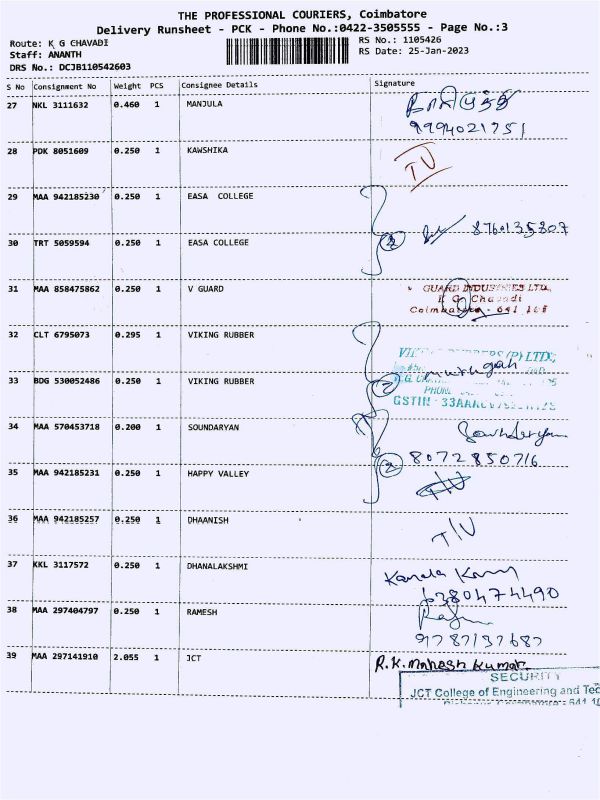 THE PROFESSIONAL COURIERS, Coimbatore
Delivery Runsheet - PCK - Phone No.:0422-3505555 - Page No.:3
Route: K G CHAVADI
RS No.: 1105426
Staff: ANANTH
RS Date: 25-Jan-2023
DRS No.: DCJB110542603
S No Consignment No Weight PCS Consignee Details Signature
27 NKL 3111632 0.460 1 MANJULA
9994021751
28 PDK 8051609 0.250 1 KAWSHIKA
29 MAA 942185230 0.250 1 EASA COLLEGE
8760135807
30 TRT 5059594 0.250 1 EASA COLLEGE
31 MAA 858475862 0.250 1 V GUARD
GUARD INDUSTRIES LTD.
K G Chavadi
Coimbatore - 641 105
32 CLT 6795073 0.295 1 VIKING RUBBER
33 BDG 530052486 0.250 1 VIKING RUBBER
GSTIN
34 MAA 570453718 0.200 1 SOUNDARYAN
8072850716
35 MAA 942185231 0.250 1 HAPPY VALLEY
36 MAA 942185257 0.250 1 DHAANISH
37 KKL 3117572 0.250 1 DHANALAKSHMI
6380474490
38 MAA 297404797 0.250 1 RAMESH
39 MAA 297141910 2.055 1 JCT
R.K. Mahesh Kumar
SECURITY
JCT College of Engineering and Tec